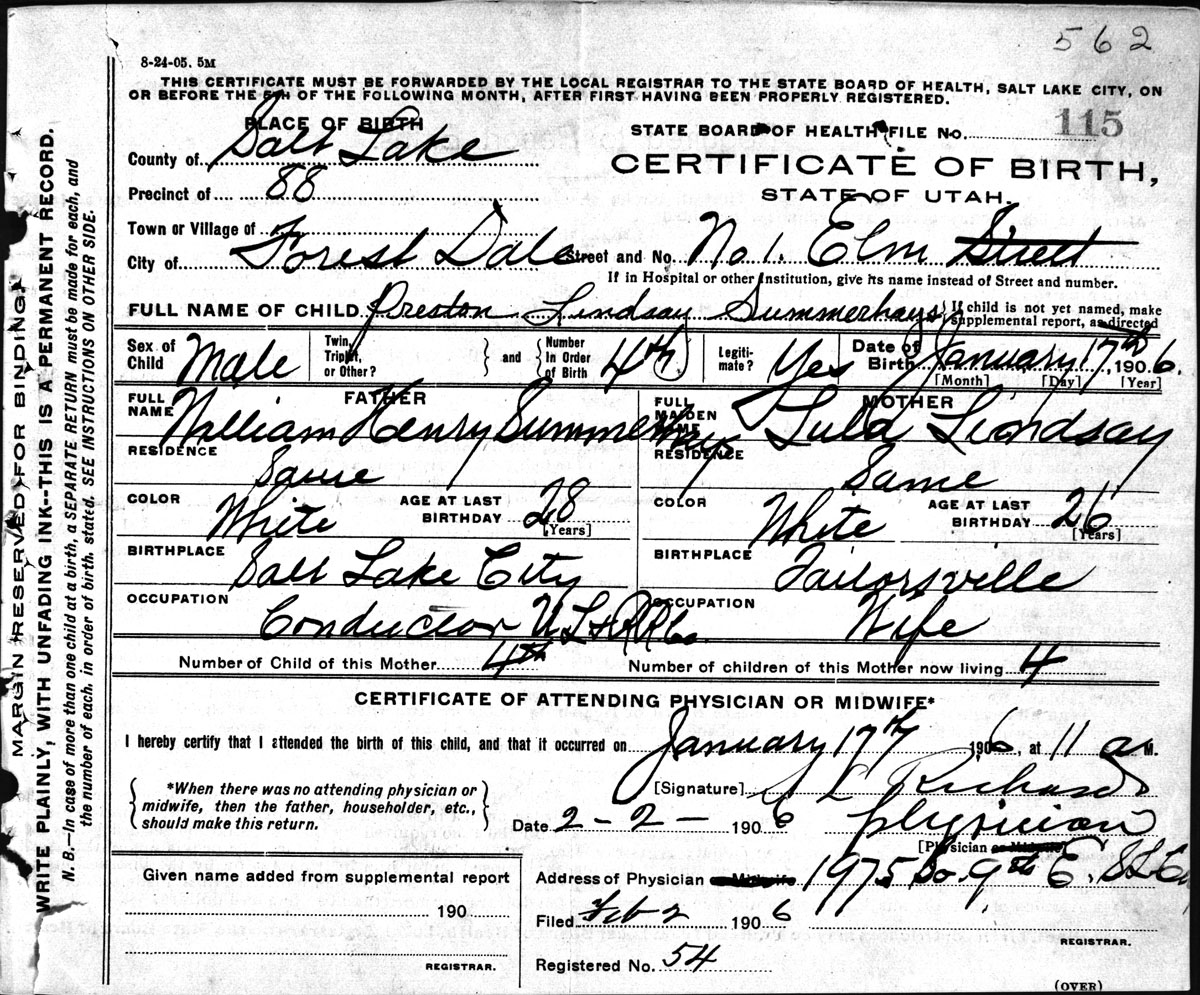 562
8-24-05. 5M
THIS CERTIFICATE MUST BE FORWARDED BY THE LOCAL REGISTRAR TO THE STATE BOARD OF HEALTH, SALT LAKE CITY, ON
OR BEFORE THE 5TH OF THE FOLLOWING MONTH, AFTER FIRST HAVING BEEN PROPERLY REGISTERED.
PLACE OF BIRTH
STATE BOARD OF HEALTH FILE No. 115
County of Salt Lake
CERTIFICATE OF BIRTH,
Precinct of 88
STATE OF UTAH.
Town or Village of
City of Forest Dale Street and No. No 1. Elm Street
If in Hospital or other Institution, give its name instead of Street and number.
FULL NAME OF CHILD Preston Lindsay Summerhays { If child is not yet named, make supplemental report, as directed
Sex of Child Male Twin, Triplet, or Other? } and { Number In Order of Birth 4th Legitimate? Yes Date of Birth January 17th 1906.
[Month] [Day] [Year]
FATHER
FULL NAME William Henry Summerhays
RESIDENCE Same
COLOR White AGE AT LAST BIRTHDAY 28 [Years]
BIRTHPLACE Salt Lake City
OCCUPATION Conductor U L & R R Co.
MOTHER
FULL MAIDEN NAME Lula Lindsay
RESIDENCE Same
COLOR White AGE AT LAST BIRTHDAY 26 [Years]
BIRTHPLACE Tailorsville
OCCUPATION Wife
Number of Child of this Mother 4th Number of children of this Mother now living 4
CERTIFICATE OF ATTENDING PHYSICIAN OR MIDWIFE*
I hereby certify that I attended the birth of this child, and that it occurred on January 17th 1906, at 11 a M.
{ *When there was no attending physician or
midwife, then the father, householder, etc.,
should make this return. }
[Signature] L Richards
Date 2 - 2 - 1906 physician
[Physician or Midwife]
Address of Physician or Midwife 1975 So. 9th E. SLC
Filed Feb 2 1906
REGISTRAR.
Registered No. 54
Given name added from supplemental report
190
REGISTRAR.
(OVER)
MARGIN RESERVED FOR BINDING
WRITE PLAINLY, WITH UNFADING INK--THIS IS A PERMANENT RECORD.
N. B.—In case of more than one child at a birth, a SEPARATE RETURN must be made for each, and
the number of each, in order of birth, stated. SEE INSTRUCTIONS ON OTHER SIDE.